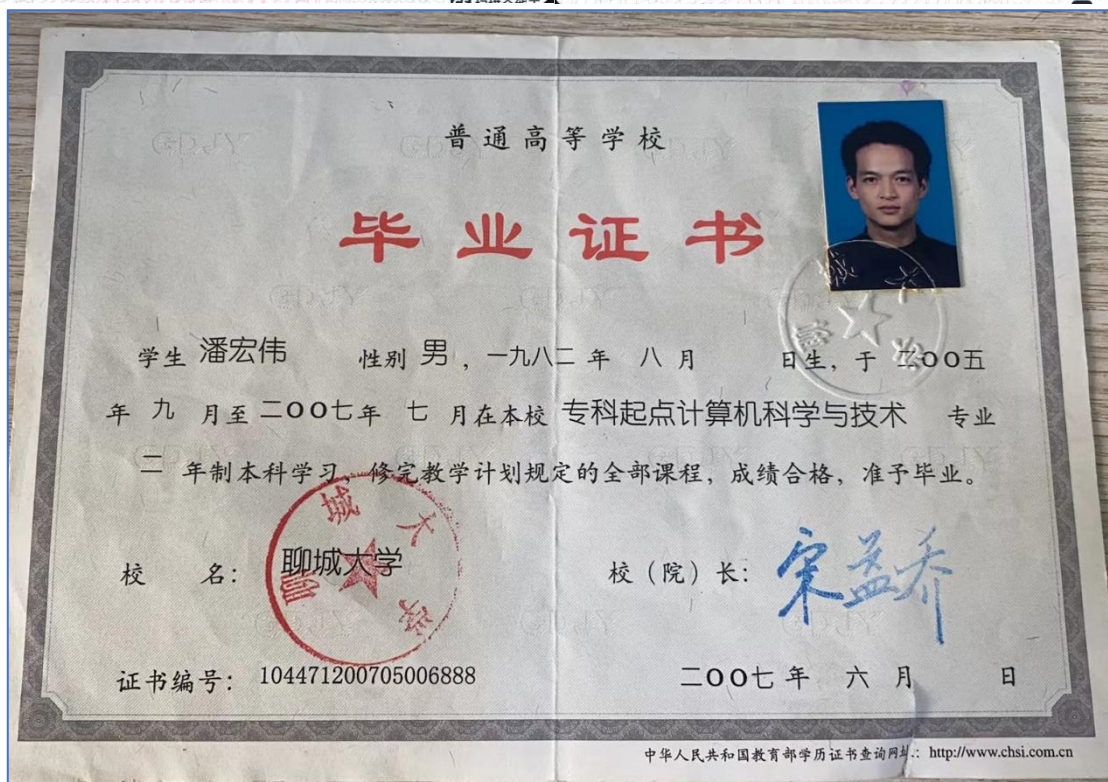 普通高等学校
毕业证书
学生 潘宏伟 性别 男 ，一九八二 年 八 月 日生，于 二〇〇五
年 九 月至 二〇〇七 年 七 月在本校 专科起点计算机科学与技术 专业
二 年制本科学习，修完教学计划规定的全部课程，成绩合格，准予毕业。
校 名： 聊城大学
聊城大学
校（院）长： 宋益乔
证书编号： 104471200705006888
二〇〇七 年 六 月 日
中华人民共和国教育部学历证书查询网址：http://www.chsi.com.cn